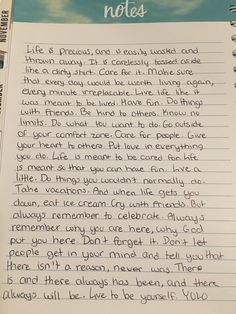 NOVEMBER
notes
Life is precious, and is easily wasted and
thrown away. It is carelessly tossed aside
like a dirty shirt. Care for it. Make sure
that every day would be worth living again,
every minute irreplacable. Live life like it
was meant to be lived. Have fun. Do things
with friends. Be kind to others. Know no
limits. Do what you want to do. Go outside
of your comfort zone. Care for people. Give
your heart to others. Put love in everything
you do. Life is meant to be cared for. Life
is meant so that you can have fun. Live a
little. Do things you wouldn't normally do.
Take vacations. And when life gets you
down, eat ice cream. Cry with friends. But
always remember to celebrate. Always
remember why you are here, why God
put you here. Don't forget it. Don't let
people get in your mind and tell you that
there isn't a reason, never was. There
is and there always has been, and there
always will be. Live to be yourself. YOLO